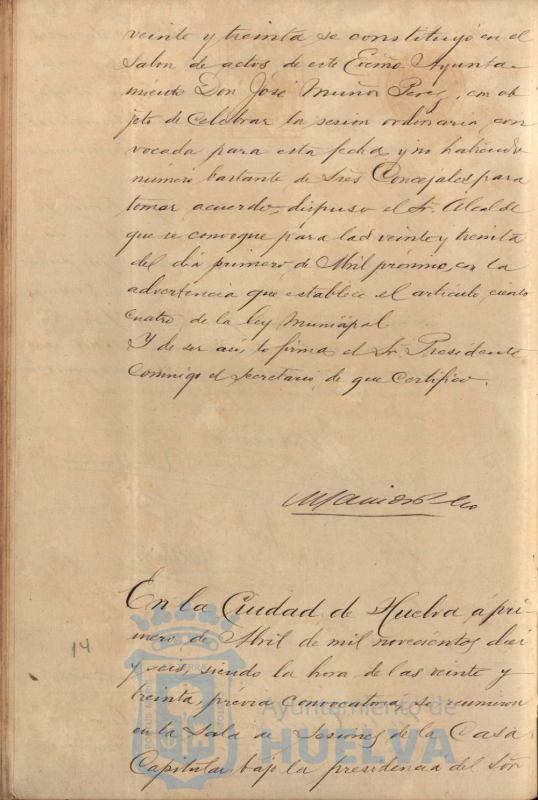 veinte y treinta se constituyó en el
Salon de actos de este Excmo. Ayunta-
miento Don José Muñoz Perez, con ob
jeto de celebrar la sesion ordinaria con
vocada para esta fecha y no habiendo
número bastante de Sres Concejales para
tomar acuerdo, dispuso el Sr. Alcalde
que se convoque para las veinte y treinta
del dia primero de Abril próximo, con la
advertencia que establece el artículo ciento
cuatro de la ley Municipal.
Y de ser asi, lo firma el Sr. Presidente
conmigo el Secretario, de que certifico.
En la Ciudad de Huelva, á pri-
mero de Abril de mil novecientos diez
14
y seis, siendo la hora de las veinte y
treinta, prévia convocatoria, se reunieron
en la Sala de Sesiones de la Casa
Capitular, bajo la presidencia del Señ
Ayuntamiento de
HUELVA